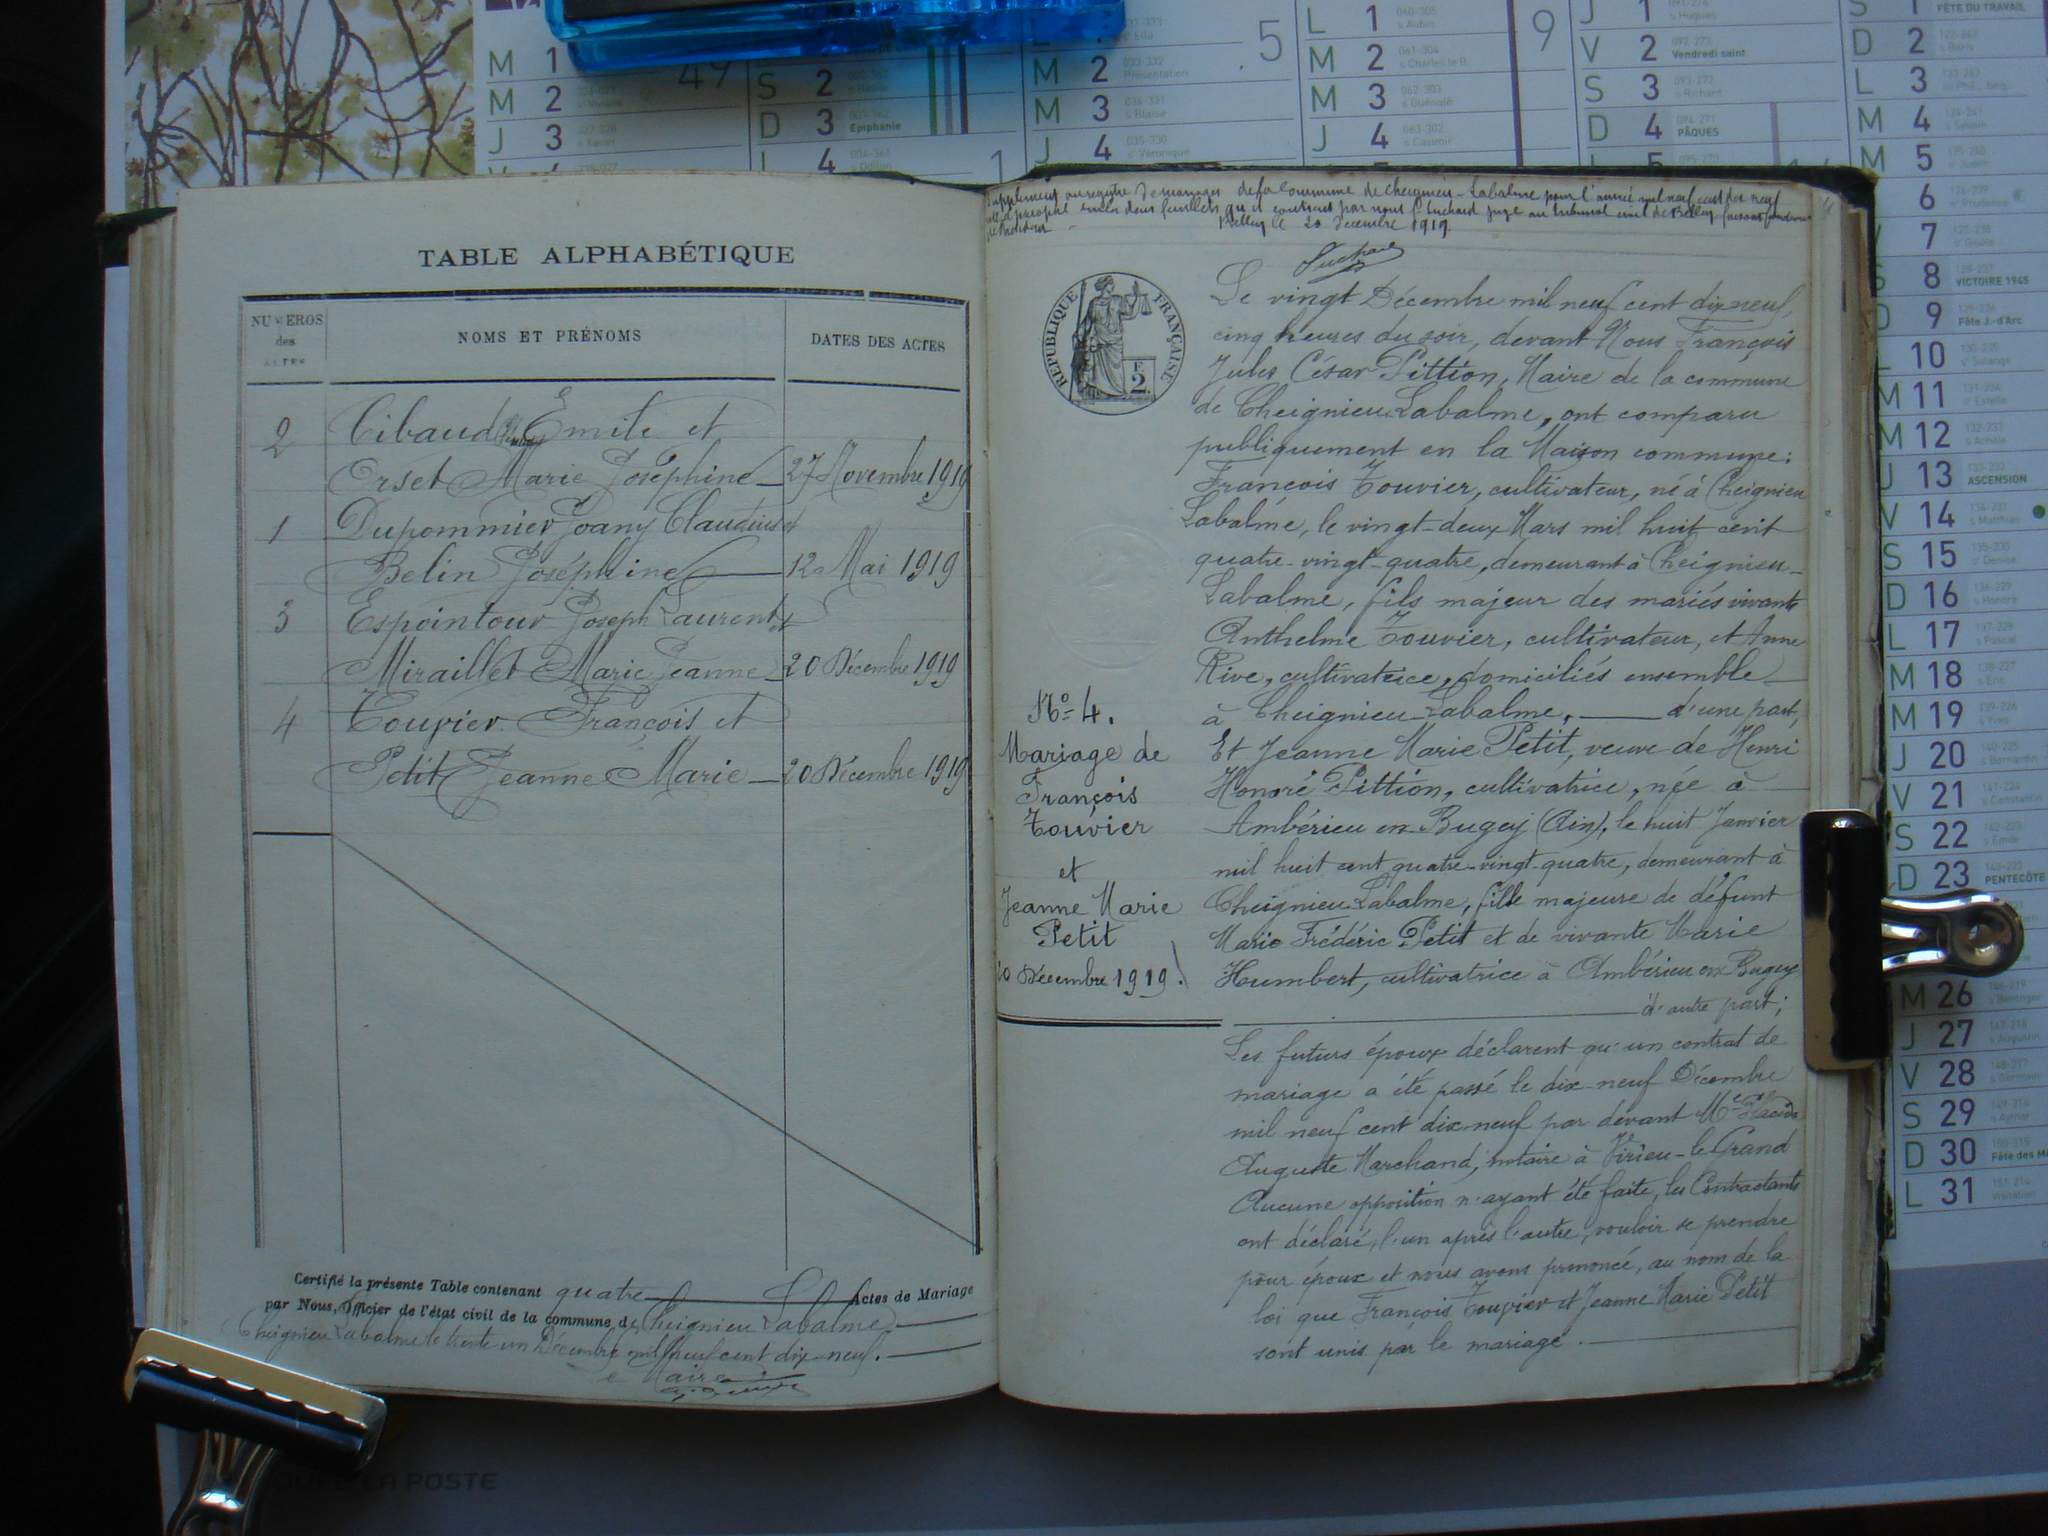 TABLE ALPHABÉTIQUE
NUMEROS
des
ACTES
NOMS ET PRÉNOMS
DATES DES ACTES
2
Cibaud Emile et
Orset Marie Joséphine 27 Novembre 1919
1
Dupommier Joany Claudius et
Belin Joséphine 12 Mai 1919
3
Espointour Joseph Laurent et
Miraillet Marie Jeanne 20 Décembre 1919
4
Touvier François et
Petit Jeanne Marie 20 Décembre 1919
Certifié la présente Table contenant quatre Actes de Mariage
par Nous, Officier de l'état civil de la commune de Cheignieu Labalme
Cheignieu Labalme le trente un Décembre mil neuf cent dix-neuf.
Le Maire
Supplément au registre de mariages de la commune de Cheignieu-Labalme pour l'année mil neuf cent dix neuf
deux feuillets par nous juge au tribunal civil de Belley
Belley le 20 Décembre 1919
RÉPUBLIQUE FRANÇAISE
F.
2.
Le vingt Décembre mil neuf cent dix neuf,
cinq heures du soir, devant Nous François
Jules César Pittion, Maire de la commune
de Cheignieu Labalme, ont comparu
publiquement en la Maison commune:
François Touvier, cultivateur, né à Cheignieu
Labalme, le vingt-deux Mars mil huit cent
quatre-vingt-quatre, demeurant à Cheignieu-
Labalme, fils majeur des mariés vivants
Anthelme Touvier, cultivateur, et Anne
Rive, cultivatrice, domiciliés ensemble
à Cheignieu-Labalme, d'une part,
Et Jeanne Marie Petit, veuve de Henri
Honoré Pittion, cultivatrice, née à
Ambérieu en Bugey (Ain), le huit Janvier
mil huit cent quatre-vingt-quatre, demeurant à
Cheignieu Labalme, fille majeure de défunt
Marie Frédéric Petit et de vivante Marie
Humbert, cultivatrice à Ambérieu en Bugey
d'autre part;
Les futurs époux déclarent qu'un contrat de
mariage a été passé le dix-neuf Décembre
mil neuf cent dix-neuf par devant Me
Auguste Marchand, notaire à Virieu-le-Grand
Aucune opposition n'ayant été faite, les Contractants
ont déclaré, l'un après l'autre, vouloir se prendre
pour époux et nous avons prononcé, au nom de la
loi que François Touvier et Jeanne Marie Petit
sont unis par le mariage.
No 4.
Mariage de
François
Touvier
et
Jeanne Marie
Petit
20 Décembre 1919.
M 1
M 2
J 3
49
S 2
D 3 Epiphanie
L 4
1
M 2 Présentation
M 3 s Blaise
J 4 se Véronique
5
L 1 s Aubin
M 2 s Charles le B.
M 3 s Guénolé
J 4 s Casimir
9
J 1 s Hugues
V 2 Vendredi saint
S 3 s Richard
D 4 PÂQUES
S 1 FÊTE DU TRAVAIL
D 2 s Boris
L 3
M 4
M 5
6
7
8 VICTOIRE 1945
9 Fête J.-d'Arc
L 10
M 11
M 12
J 13 ASCENSION
V 14
S 15
D 16
L 17
M 18
M 19
J 20
V 21
S 22
D 23 PENTECÔTE
M 26
J 27
V 28
S 29
D 30 Fête des M
L 31
LA POSTE